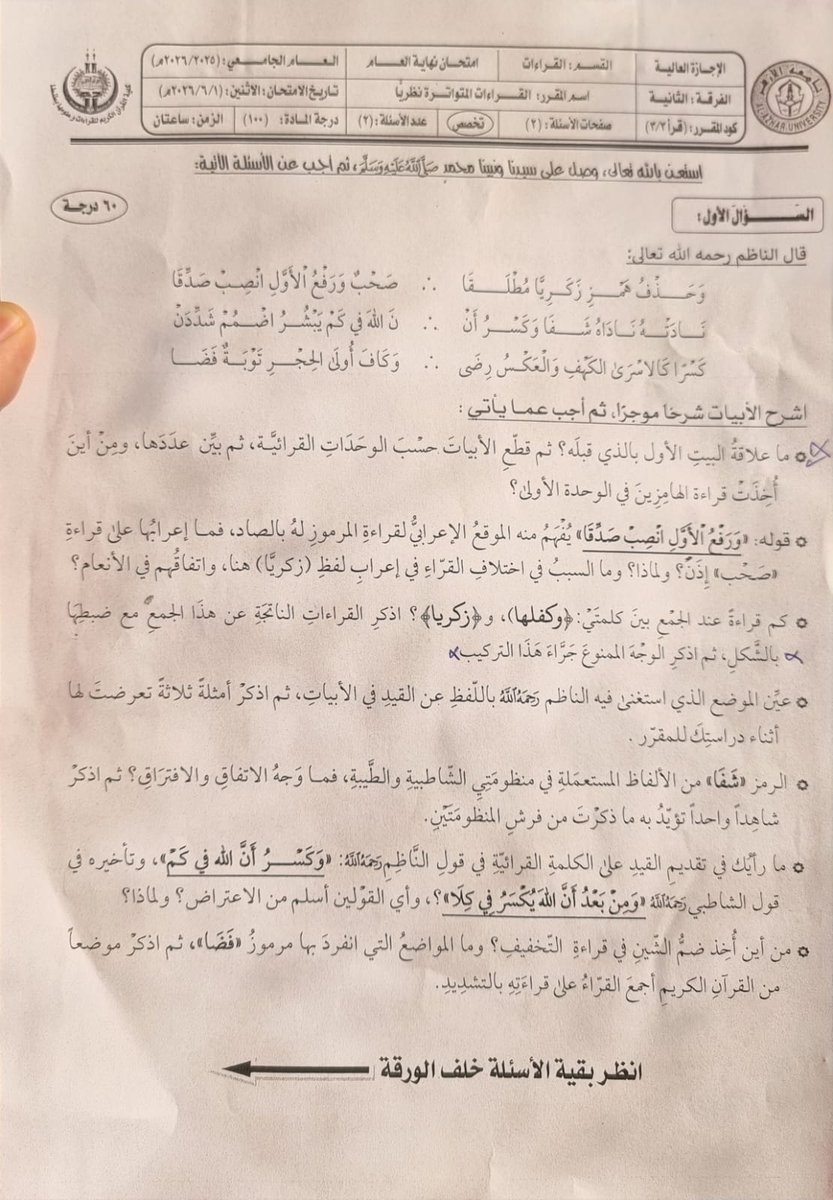 جامعة الأزهر
AL-AZHAR UNIVERSITY
الإجازة العالية
القسم: القراءات
امتحان نهاية العام
العام الجامعي: (٢٠٢٦/٢٠٢٥م)
الفرقة: الثانية
اسم المقرر: القراءات المتواترة نظريًّا
تاريخ الامتحان: الاثنين: (٢٠٢٦/٦/١م)
كود المقرر: (قرأ ٣/٢)
صفحات الأسئلة: (٢)
تخصص
عدد الأسئلة: (٢)
درجة المادة: (١٠٠)
الزمن: ساعتان
استعن بالله تعالى، وصل على سيدنا ونبينا محمد صَلَّى اللَّهُ عَلَيْهِ وَسَلَّمَ، ثم اجب عن الأسئلة الآتية:
السـؤال الأول:
٦٠ درجة
قال الناظم رحمه الله تعالى:
وَحَـذْفُ هَمْـزِ زَكَرِيَّا مُطْلَـقَا ∴ صَحْبٌ وَرَفْعُ الْأَوَّلِ انْصِبْ صَدِّقَا
نَـادَتْـهُ نَـادَاهُ شَـفَا وَكَسْـرُ أَنْ ∴ نَ اللهَ فِي كَمْ يَبْشُرُ اضْمُمْ شَدِّدَنْ
كَسْرًا كَالِاسْرَىٰ الْكَهْفِ وَالْعَكْسُ رِضَى ∴ وَكَافَ أُولَىٰ الْحِجْرِ تَوْبَةٌ فَضَـا
اشرح الأبيات شرحًا موجزًا، ثم أجب عما يأتي:
ما علاقةُ البيتِ الأول بالذي قبلَه؟ ثم قطّعِ الأبياتَ حسْبَ الوحَدَاتِ القرائيَّة، ثم بيِّن عدَدَها، ومِنْ أينَ
أُخِذَتْ قراءة الهامِزِينَ في الوحدة الأولىٰ؟
قوله: «وَرَفْعُ الْأَوَّلِ انْصِبْ صَدِّقَا» يُفْهَمُ منه الموقعُ الإعرابيُّ لقراءةِ المرموزِ لهُ بالصاد، فمـا إعرابُها علىٰ قراءةِ
«صَحْب» إِذَنْ؟ ولماذا؟ وما السببُ في اختلافِ القرّاءِ في إعرابِ لفظِ (زكريَّا) هنا، واتفاقُهم في الأنعام؟
كم قراءةً عند الجمْعِ بينَ كلمتَيْ: ﴿وكفلها﴾، و﴿زكريا﴾؟ اذكرِ القراءاتِ الناتجَةِ عن هذَا الجمعِ مع ضبطِهَا
بالشَّكلِ، ثم اذكرِ الوجْهَ الممنوعَ جَرَّاءَ هَذَا التركيب
عيِّن الموضع الذي استغنىٰ فيه الناظم رَحِمَهُ اللَّهُ باللّفظِ عن القيدِ في الأبياتِ، ثم اذكرْ أمثلةً ثلاثةً تعرضتَ لها
أثناء دراستِكَ للمقرّر .
الرمز «شَفَا» من الألفاظ المستعمَلةِ في منظومَتِي الشّاطبيةِ والطَّيبةِ، فمـا وَجهُ الاتفاقِ والافترَاقِ؟ ثم اذكرْ
شاهداً واحداً تؤيّدُ به ما ذكرْتَ من فرشِ المنظومَتَيْنِ.
ما رأيُك في تقديمِ القيدِ علىٰ الكلمةِ القرائيّةِ في قولِ النَّاظِمِ رَحِمَهُ اللَّهُ: «وَكَسْـرُ أَنَّ الله في كَمْ»، وتأخيره في
قول الشاطبي رَحِمَهُ اللَّهُ «وَمِنْ بَعْدُ أَنَّ اللهَ يُكْسَرُ فِي كِلَا»؟، وأي القوْلين أسلم من الاعتراض؟ ولماذا؟
من أين أُخِذ ضمُّ الشّينِ في قراءةِ التّخفيفِ؟ وما المواضعُ التي انفردَ بها مرموزُ «فَضَا»، ثم اذكرْ موضعاً
من القرآنِ الكريمِ أجمعَ القرّاءُ علىٰ قراءَتِهِ بالتشدِيدِ.
انظر بقية الأسئلة خلف الورقة